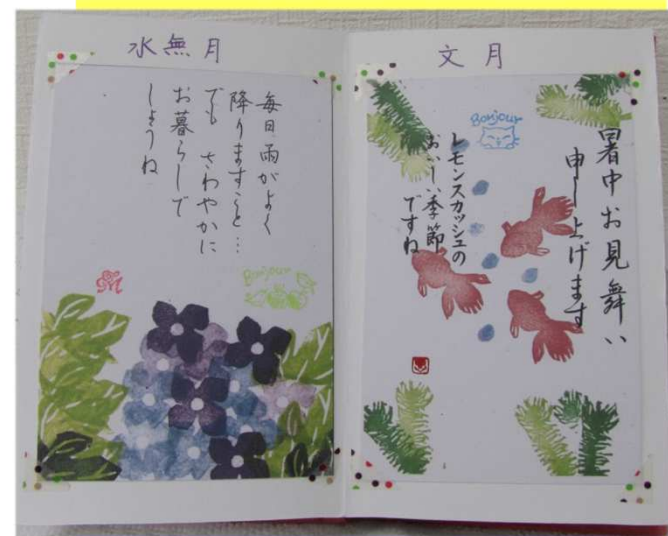 水無月
毎日雨がよく
降りますこと…
でも さわやかに
お暮らしで
しょうね
Bonjour
M
文月
暑中お見舞い
申し上げます
Bonjour
レモンスカッシュの
おいしい季節
ですね